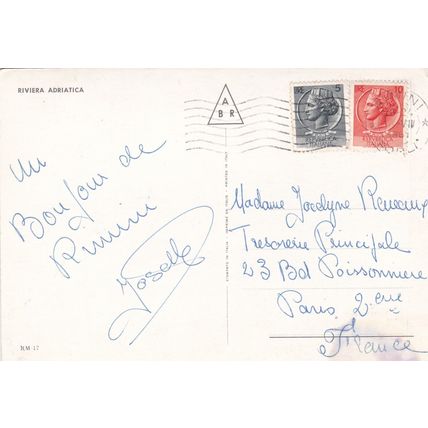 RIVIERA ADRIATICA
A
BR
5
10
Un
Bonjour de
Rimini
Joselle
Madame Jocelyne
Tresorerie Principale
23 Bd Poissonniere
Paris 2eme
France
RM-17